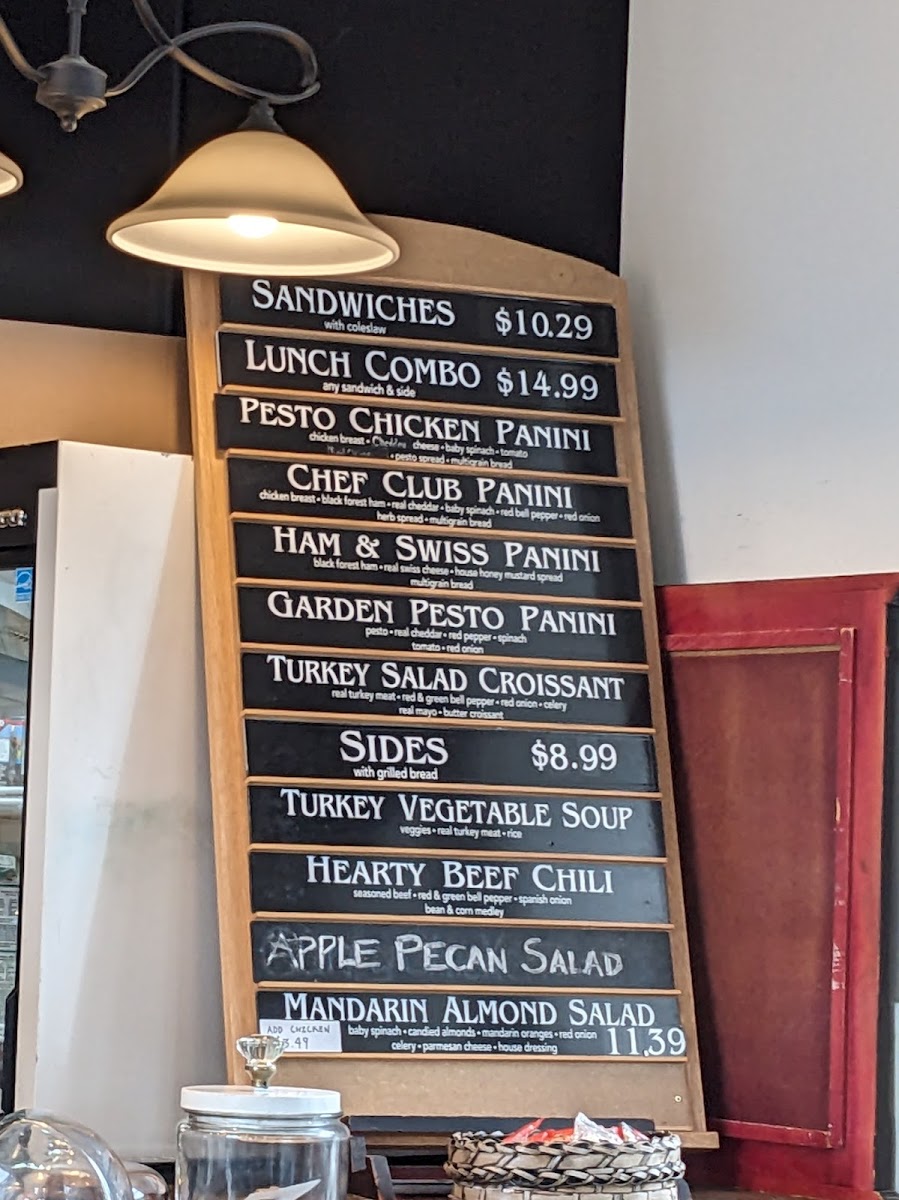 SANDWICHES $10.29
with coleslaw
LUNCH COMBO $14.99
any sandwich & side
PESTO CHICKEN PANINI
chicken breast • Cheddar cheese • baby spinach • tomato
• pesto spread • multigrain bread
CHEF CLUB PANINI
chicken breast • black forest ham • real cheddar • baby spinach • red bell pepper • red onion
herb spread • multigrain bread
HAM & SWISS PANINI
black forest ham • real swiss cheese • house honey mustard spread
multigrain bread
GARDEN PESTO PANINI
pesto • real cheddar • red pepper • spinach
tomato • red onion
TURKEY SALAD CROISSANT
real turkey meat • red & green bell pepper • red onion • celery
real mayo • butter croissant
SIDES $8.99
with grilled bread
TURKEY VEGETABLE SOUP
veggies • real turkey meat • rice
HEARTY BEEF CHILI
seasoned beef • red & green bell pepper • spanish onion
bean & corn medley
APPLE PECAN SALAD
MANDARIN ALMOND SALAD
baby spinach • candied almonds • mandarin oranges • red onion 11.39
celery • parmesan cheese • house dressing
ADD CHICKEN
3.49